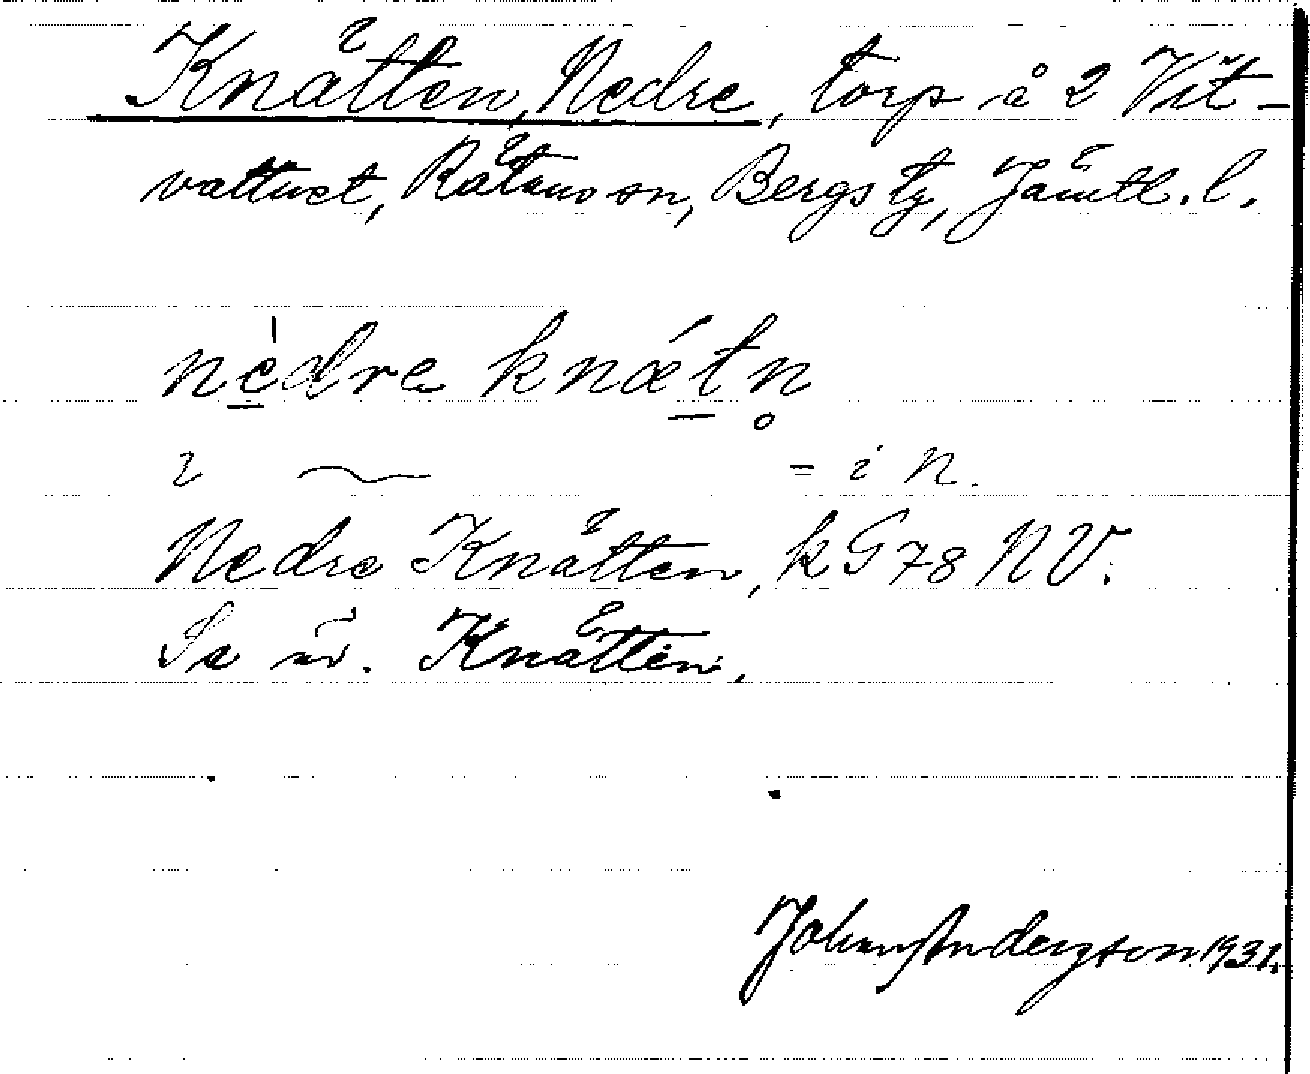 Knätten, Nedre, torp å 2 Vit-
vattnet, Rätans sn, Bergs tg, Jämtl. l.
nèdre knǽt̲n̥
i ~ = i n.
Nedre Knätten, k G 78 NV.
Se äv. Knätten.
Johan Anderzson 1931.